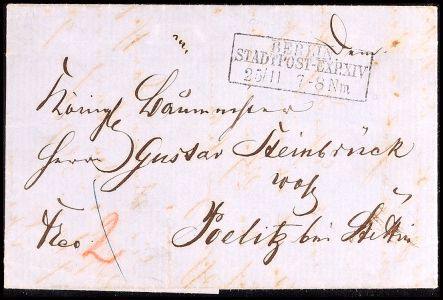 Dem
BERLIN
STADTPOST-EXP.XIV
25/11 7-8 Nm
Königl
Herrn Gustav Steinbrück
Poelitz bei Stettin
2